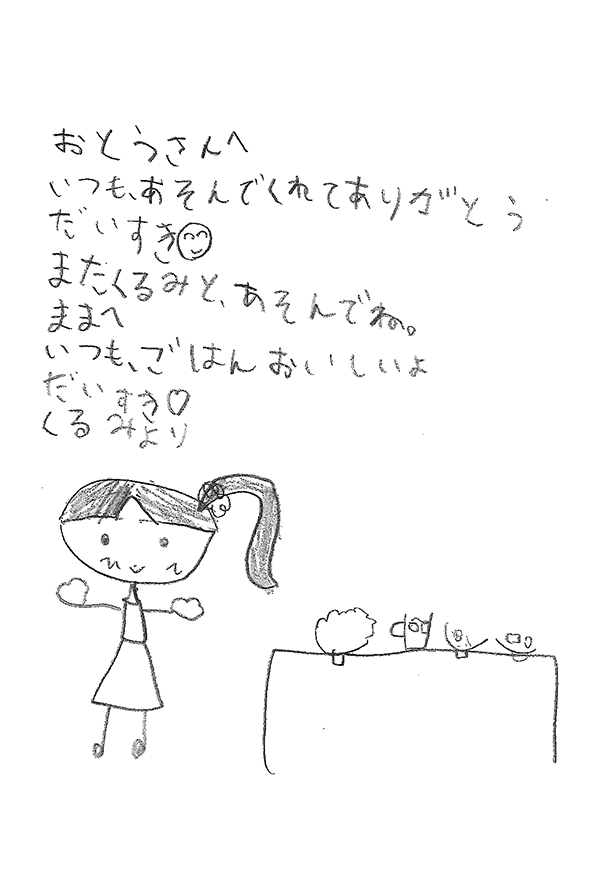 おとうさんへ
いつも、あそんでくれてありがとう
だいすき
またくるみと、あそんでね。
ままへ
いつも、ごはんおいしいよ
だいすき♡
くるみより